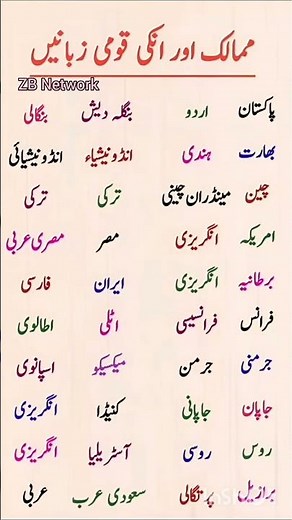 ممالک اور انکی قومی زبانیں
ZB Network
پاکستان اردو بنگلہ دیش بنگالی
بھارت ہندی انڈونیشیاء انڈونیشیائی
چین مینڈران چینی ترکی ترکی
امریکہ انگریزی مصر مصری عربی
برطانیہ انگریزی ایران فارسی
فرانس فرانسیسی اٹلی اطالوی
جرمنی جرمن میکسیکو اسپانوی
جاپان جاپانی کنیڈا انگریزی
روس روسی آسٹریلیا انگریزی
برازیل پرتگالی سعودی عرب عربی